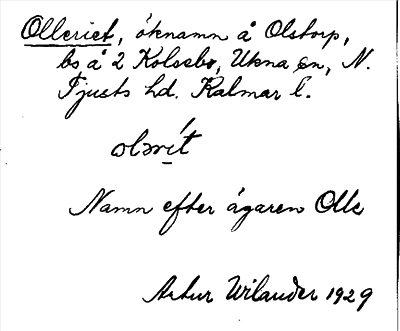 Olleriet, öknamn å Olstorp,
bs å 2 Kolsebo, Ukna sn, N.
Tjusts hd. Kalmar l.
olərít
Namn efter ägaren Olle
Artur Wilander 1929